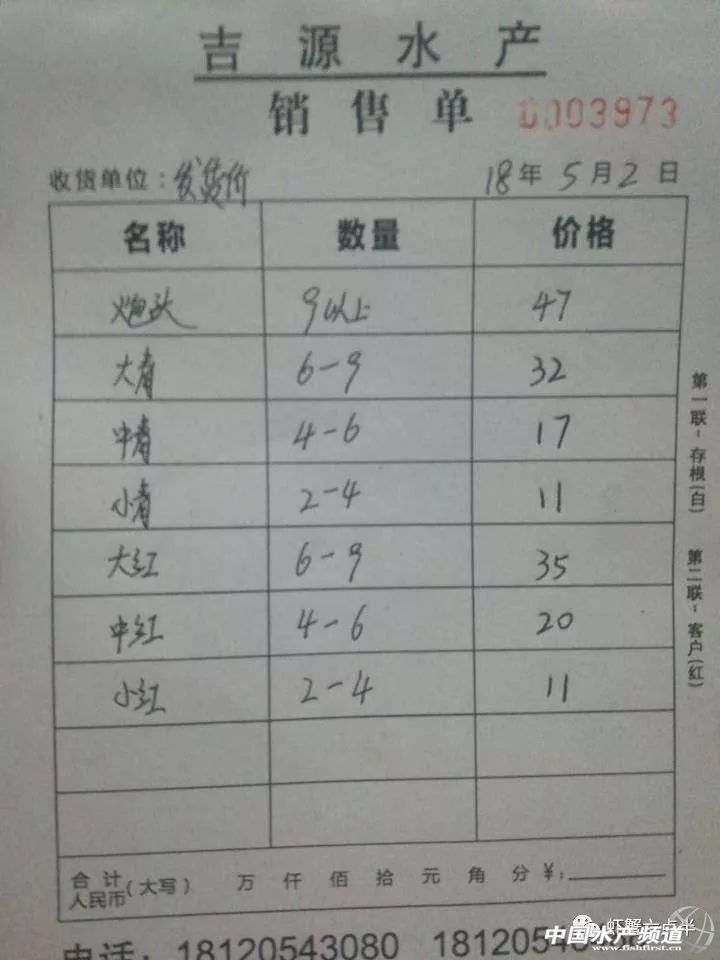 吉源水产
销售单 0003973
收货单位：发货价 18年5月2日
名称 数量 价格
炮头 9以上 47
大青 6-9 32
中青 4-6 17
小青 2-4 11
大红 6-9 35
中红 4-6 20
小红 2-4 11
合计人民币(大写) 万仟佰拾元角分¥:
第一联-存根(白) 第二联-客户(红)
电话: 18120543080 181205
虾蟹六点半
中国水产频道
www.fishfirst.cn